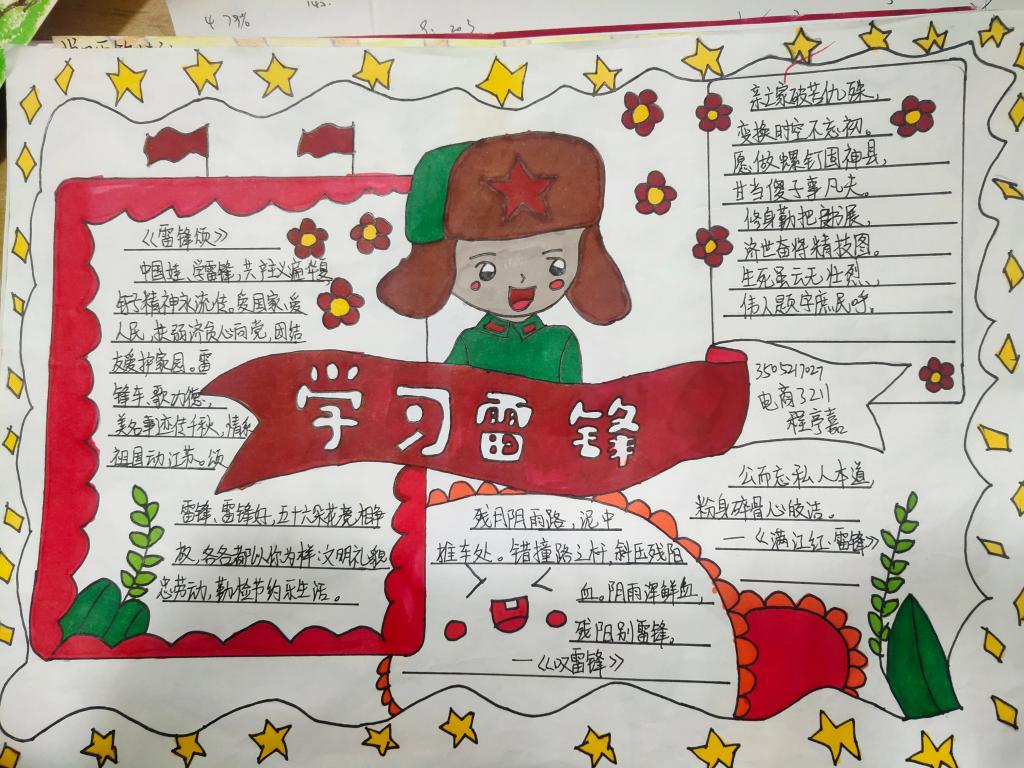 4 79%
《雷锋颂》
中国娃、学雷锋,共产主义遍华夏,
钉子精神永流传。爱国家、爱
人民,扶弱济贫心向党,团结
友爱护家园。雷
锋车、歌大德,
美名事迹传千秋,情系
祖国动江苏。颂
雷锋、雷锋好,五十六朵花竞相争
放,各各都以你为样:文明礼貌
忠劳动,勤俭节约乐生活。
学习雷锋
亲亡家破苦仇殊,
变换时空不忘初。
愿做螺钉固神县,
甘当傻子事凡夫。
修身勤把书展,
济世奋将精技图。
生死虽云无壮烈,
伟人题字庶民呼。
3505217027
电商3211
程亭嘉
公而忘私人本道,
粉身碎骨心放洁。
—《满江红·雷锋》
残月阴雨路,泥中
推车处。错撞路之杆,斜压残阳
血。阴雨浑鲜血,
残阳别雷锋。
—《叹雷锋》